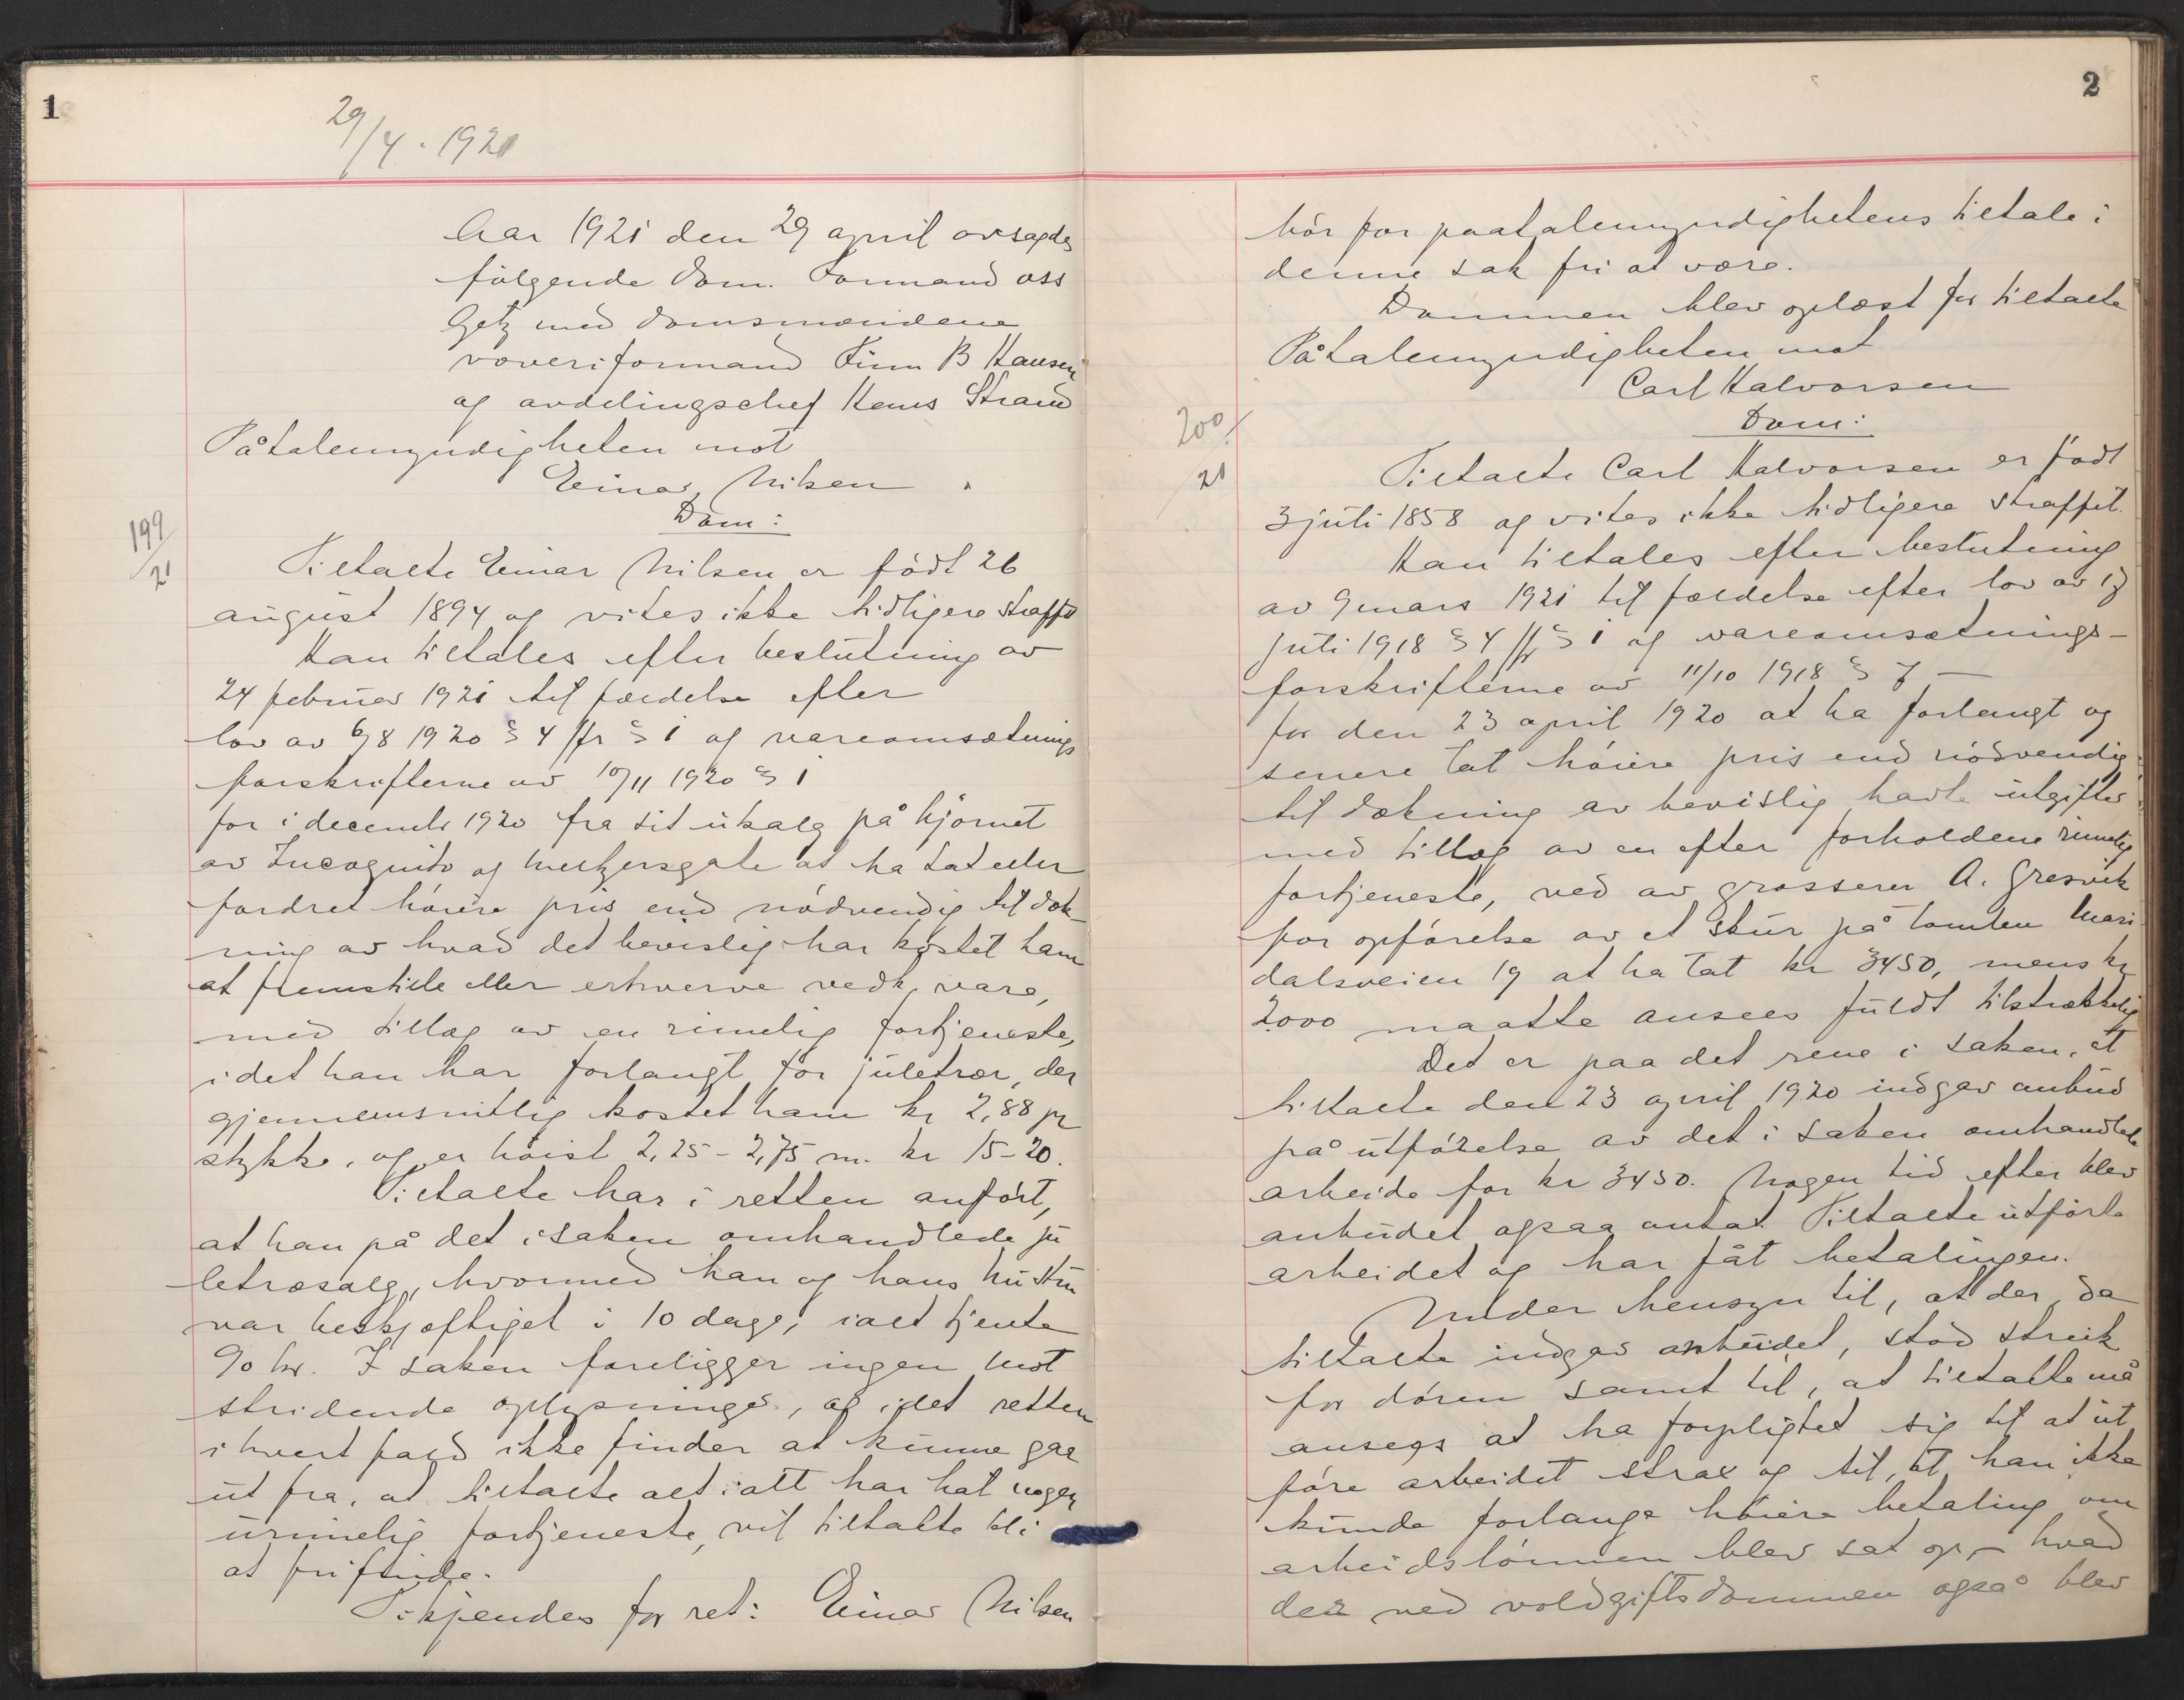 1
29/4. 1921
Aar 1921 den 29 april avsagdes
følgende dom. Formand ass
Getz med domsmændene
væveriformand Finn B Hansen
og avdelingschef Hans Strand
Påtalemyndigheten mot
Einar Nilsen
Dom:
199/21
Tiltalte Einar Nilsen er född 26
august 1894 og vites ikke tidligere straffet
Han tiltales efter beslutning av
24 februar 1921 til fældelse efter
lov av 6/8 1920 § 4 jfr § 1 og vareomsætnings
forskrifterne av 10/11 1920 § 1
for i decembr 1920 fra sit utsalg på hjørnet
av Incognito og Meltzersgate at ha tat eller
fordret høiere pris end nødvendig til dæk
ning av hvad det bevislig har kostet ham
at fremstille eller erhverve vedk. vare,
med tillæg av en rimelig fortjeneste,
idet han har forlangt for juletrær, der
gjennemsnitlig kostet ham kr 2,88 pr
stykke, og er høist 2,25 - 2,75 m. kr 15-20.
Tiltalte har i retten anført,
at han på det i saken omhandlede ju
letræsalg, hvormed han og hans hustru
var beskjæftiget i 10 dage, ialt tjente
90 kr. I saken foreligger ingen mot
stridende oplysninger, og idet retten
i hvert fald ikke finder at kunne gaa
ut fra, at tiltalte alt i alt har hat nogen
urimelig fortjeneste, vil tiltalte bli
at frifinde.
Ti kjendes for ret: Einar Nilsen
2
bör for paatalemyndighetens tiltale i
denne sak fri at være.
Dommen blev oplæst for tiltalte
Påtalemyndigheten mot
Carl Halvorsen
Dom:
200/21
Tiltalte Carl Halvorsen er född
3 juli 1858 og vites ikke tidligere straffet.
Han tiltales efter beslutning
av 9 mars 1921 til fældelse efter lov av 17
juli 1918 § 4 jfr § 1 og vareomsætnings-
forskrifterne av 11/10 1918 § 7 —
for den 23 april 1920 at ha forlangt og
senere tat høiere pris end nödvendig
til dækning av bevislig havte utgifter
med tillæg av en efter forholdene rimelig
fortjeneste, ved av grosserer A. Gresvik
for opførelse av et skur på tomten Mari
dalsveien 19 at ha tat kr 3450, mens kr
2000 maatte ansees fuldt tilstrækkelig
Det er paa det rene i saken, at
tiltalte den 23 april 1920 indgav anbud
på utførelse av det i saken omhandlede
arbeide for kr 3450. Nogen tid efter blev
anbudet ogsaa antat. Tiltalte utførte
arbeidet og har fåt betalingen.
Under hensyn til, at der, da
tiltalte indgav anbudet, stod streik
for døren samt til, at tiltalte må
ansees at ha forpligtet sig til at ut
føre arbeidet strax og til, at han ikke
kunde forlange høiere betaling om
arbeidslønnen blev sat op, - hvad
den ved voldgiftsdommen også blev